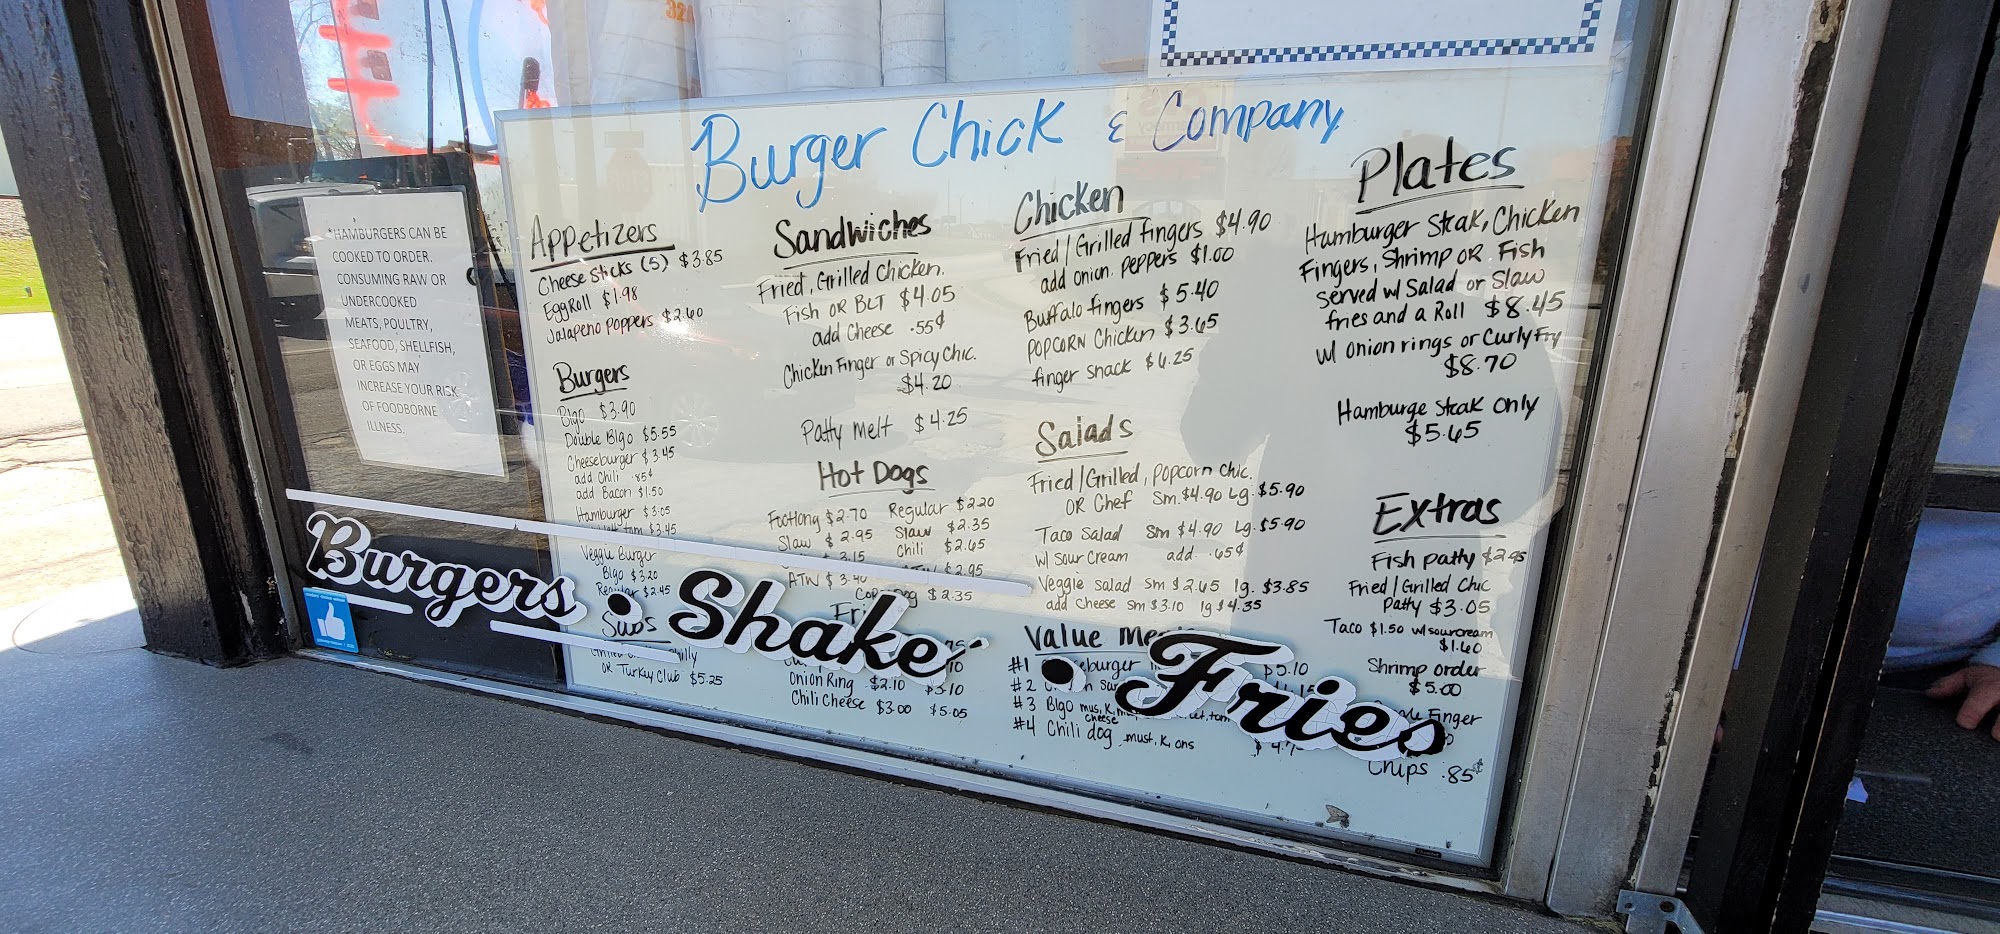 *HAMBURGERS CAN BE
COOKED TO ORDER.
CONSUMING RAW OR
UNDERCOOKED
MEATS, POULTRY,
SEAFOOD, SHELLFISH,
OR EGGS MAY
INCREASE YOUR RISK
OF FOODBORNE
ILLNESS.
Burger Chick & Company
Appetizers
Cheese Sticks (5) $3.85
EggRoll $1.98
Jalapeno Poppers $2.60
Burgers
BIgo $3.90
Double BIgo $5.55
Cheeseburger $3.45
add Chili .85¢
add Bacon $1.50
Hamburger $3.05
$3.45
Veggie Burger
BIgo $3.20
Regular $2.45
Subs
or Turkey Club $5.25
Sandwiches
Fried, Grilled Chicken,
Fish or BLT $4.05
add Cheese .55¢
Chicken Finger or Spicy Chic.
$4.20
Patty Melt $4.25
Hot Dogs
Footlong $2.70 Regular $2.20
Slaw $2.95 Slaw $2.35
3.15 Chili $2.65
ATW $3.40 $2.95
$2.35
Onion Ring $2.10 $3.10
Chili Cheese $3.00 $5.05
Chicken
Fried/Grilled fingers $4.90
add onion. peppers $1.00
Buffalo fingers $5.40
POPCORN Chicken $3.65
finger snack $6.25
Salads
Fried/Grilled, popcorn chic.
OR Chef Sm. $4.90 Lg. $5.90
Taco Salad Sm $4.90 Lg. $5.90
w/ Sour Cream add .65¢
Veggie Salad Sm $2.65 lg. $3.85
add Cheese Sm $3.10 lg $4.35
Value
#1 $5.10
#2
#3 BIgo
cheese
#4 Chili dog, must, K, ons
Plates
Hamburger Steak, Chicken
Fingers, Shrimp OR Fish
Served w/ Salad or Slaw
fries and a Roll $8.45
w/ onion rings or Curly Fry
$8.70
Hamburge Steak only
$5.65
Extras
Fish patty $2.95
Fried/Grilled Chic
Patty $3.05
Taco $1.50 w/sourcream
$1.60
Shrimp order
$5.00
Finger
Chips .85¢
Burgers • Shakes • Fries